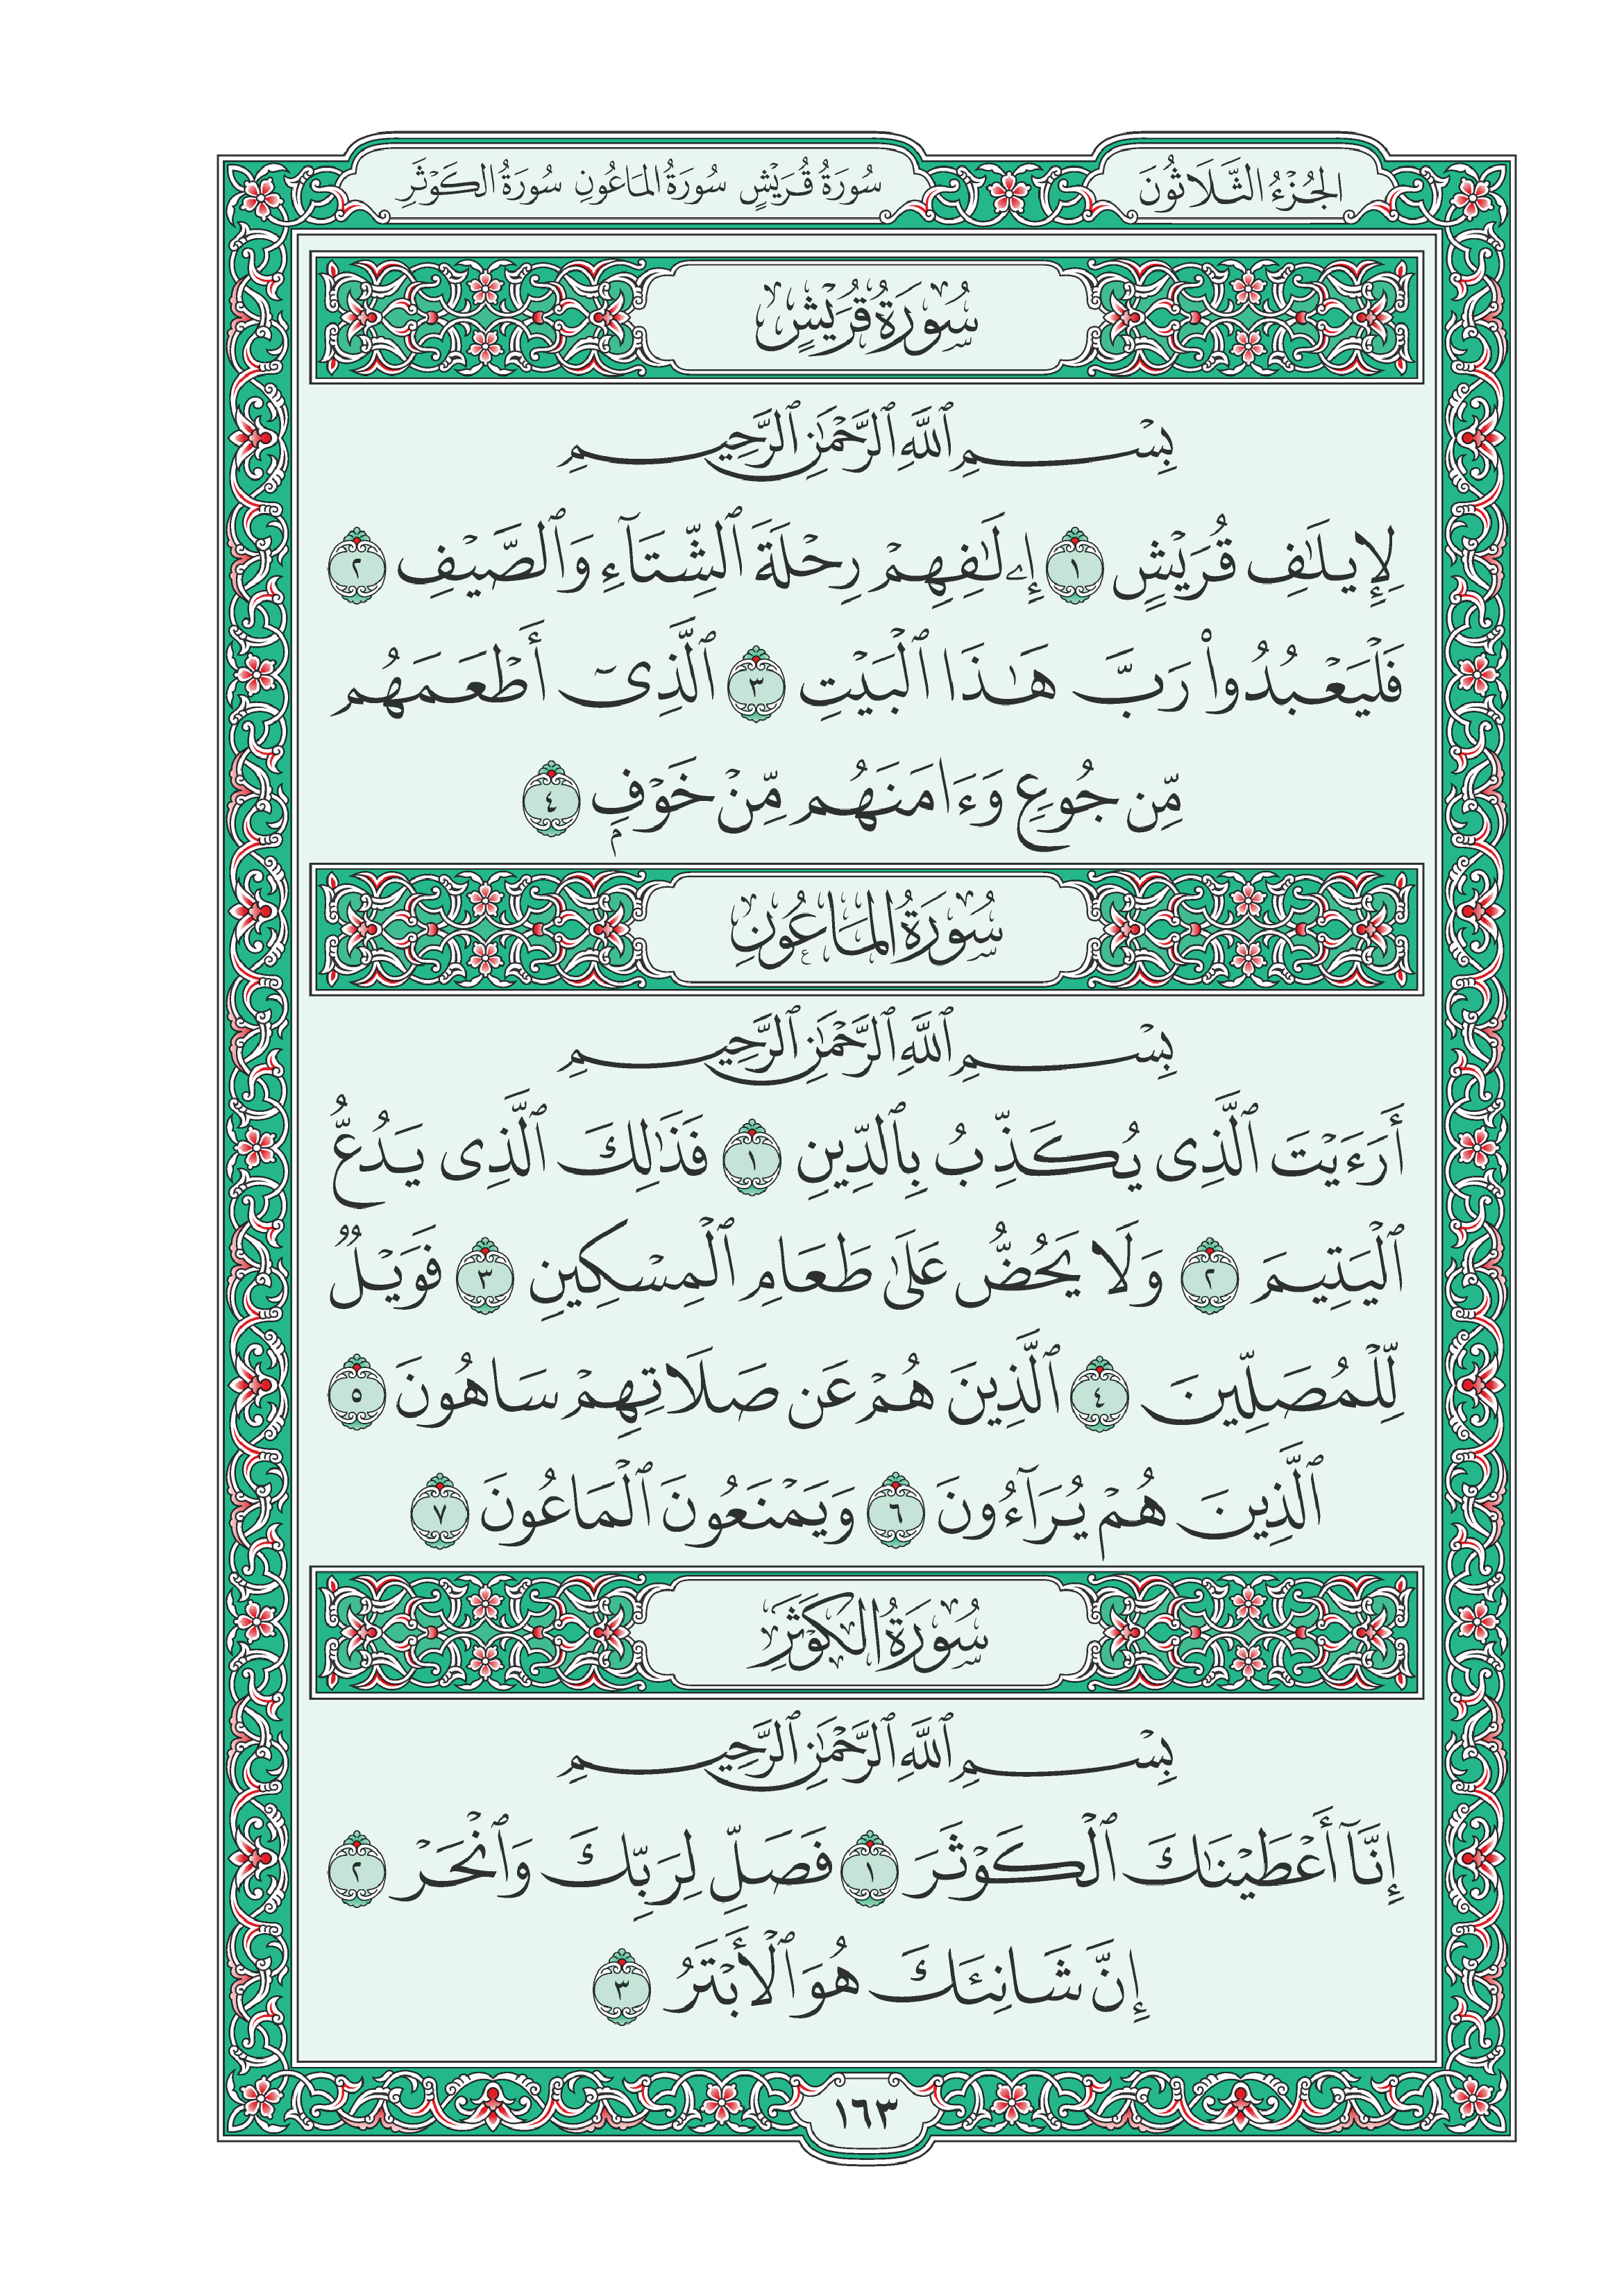 الجُزْءُ الثَّلَاثُونَ
سُورَةُ قُرَيْشٍ سُورَةُ المَاعُونِ سُورَةُ الكَوْثَرِ
سُورَةُ قُرَيْشٍ
بِسْمِ ٱللَّهِ ٱلرَّحْمَٰنِ ٱلرَّحِيمِ
لِإِيلَٰفِ قُرَيْشٍ ١ إِۦلَٰفِهِمْ رِحْلَةَ ٱلشِّتَآءِ وَٱلصَّيْفِ ٢
فَلْيَعْبُدُوا۟ رَبَّ هَٰذَا ٱلْبَيْتِ ٣ ٱلَّذِىٓ أَطْعَمَهُم
مِّن جُوعٍ وَءَامَنَهُم مِّنْ خَوْفٍۭ ٤
سُورَةُ المَاعُونِ
بِسْمِ ٱللَّهِ ٱلرَّحْمَٰنِ ٱلرَّحِيمِ
أَرَءَيْتَ ٱلَّذِى يُكَذِّبُ بِٱلدِّينِ ١ فَذَٰلِكَ ٱلَّذِى يَدُعُّ
ٱلْيَتِيمَ ٢ وَلَا يَحُضُّ عَلَىٰ طَعَامِ ٱلْمِسْكِينِ ٣ فَوَيْلٌ
لِّلْمُصَلِّينَ ٤ ٱلَّذِينَ هُمْ عَن صَلَاتِهِمْ سَاهُونَ ٥
ٱلَّذِينَ هُمْ يُرَآءُونَ ٦ وَيَمْنَعُونَ ٱلْمَاعُونَ ٧
سُورَةُ الكَوْثَرِ
بِسْمِ ٱللَّهِ ٱلرَّحْمَٰنِ ٱلرَّحِيمِ
إِنَّآ أَعْطَيْنَٰكَ ٱلْكَوْثَرَ ١ فَصَلِّ لِرَبِّكَ وَٱنْحَرْ ٢
إِنَّ شَانِئَكَ هُوَ ٱلْأَبْتَرُ ٣
١٦٣